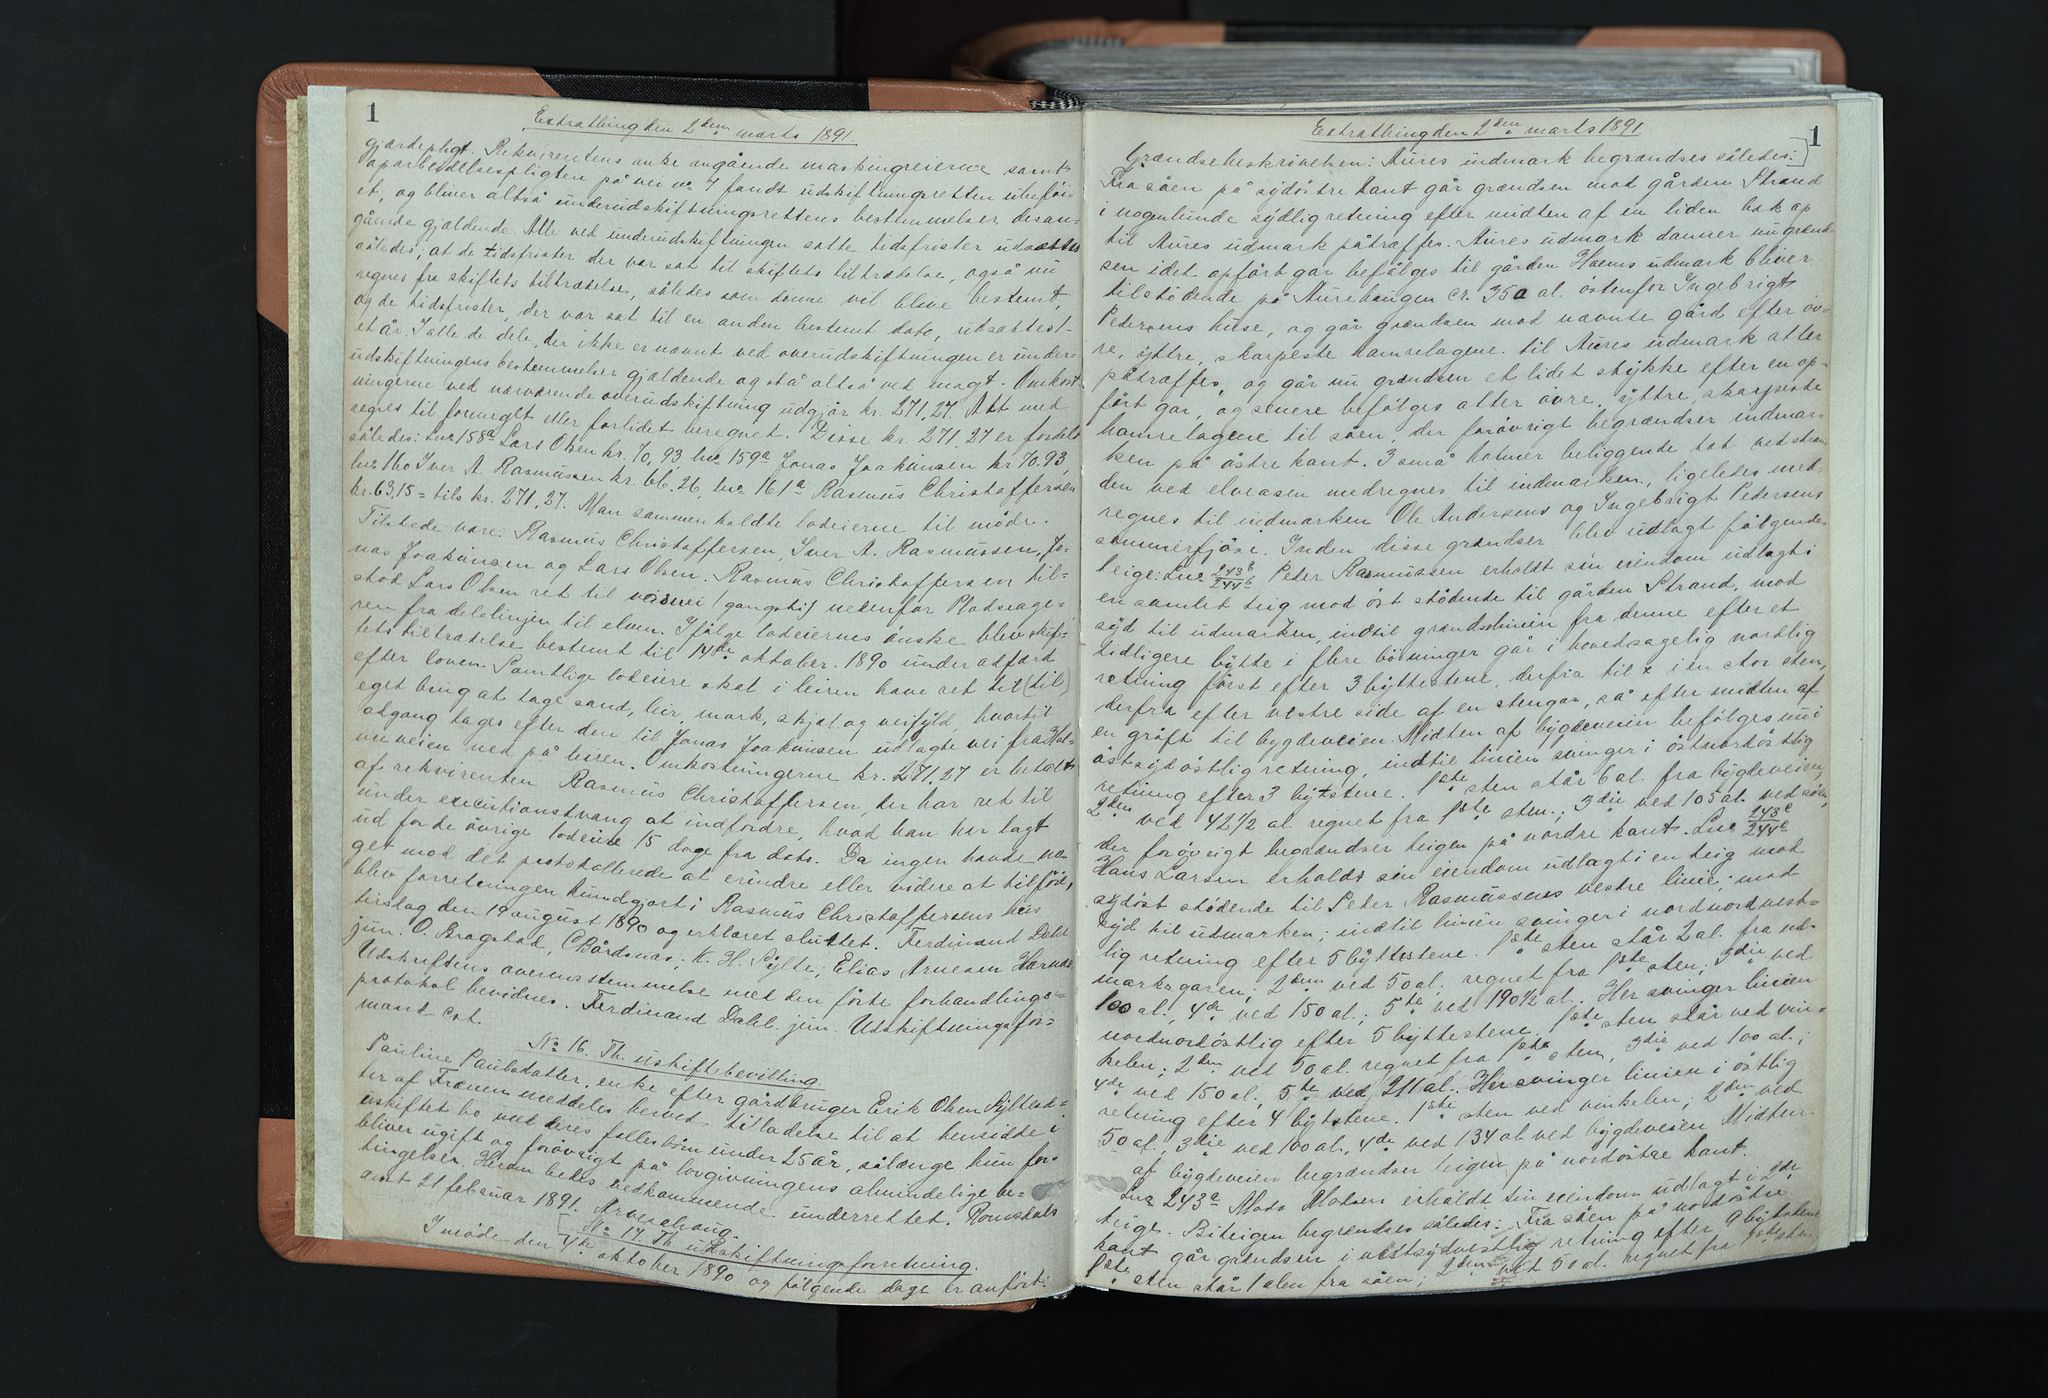 1
Extrathing den 2den marts 1891.
gjærdepligt. Rekvirentens anke angående maskingreierne samt
oparbeidelsespligten på vei no 7 fandt udskiftningsretten ubeföi-
et, og bliver altså underudskiftningsrettens bestemmelser desan-
gående gjældende. Alle ved underudskiftningen satte tidsfrister udsættes
således; at de tidsfrister der var sat til skiftets tiltrædelse, også nu
regnes fra skiftets tiltrædelse, således som denne vil blive bestemt,
og de tidsfrister, der var sat til en anden bestemt dato, udsættest-
et år. I alle de dele, der ikke er nævnt ved overudskiftningen er under-
udskiftningens bestemmelser gjældende og stå altså ved magt. Omkost-
ningerne ved nærværende overudskiftning udgjör kr. 271,27. Alt med
regres til formeget eller forlidet beregnet. Disse kr. 271,27 er fordelt
således: Lno 158a Lars Olsen kr. 70,93, lno 159a Jonas Joakimsen kr 70.93,
lno 160 Iver A. Rasmussen kr. 66.26, lno 161a Rasmus Christoffersen
kr. 63,15 = tils kr. 271,27. Man sammenkaldte lodeierne til möde.
Tilstede vare: Rasmus Christoffersen, Iver A. Rasmussen, Jo-
nas Joakimsen og Lars Olsen. Rasmus Christoffersen til-
stod Lars Olsen ret til vasvei (gangsti) nedenfor Pladseage-
ren fra delelinjen til elven. Ifölge lodeiernes önske blev skif-
tets tiltrædelse bestemt til 14de oktober 1890 under adfærd
efter loven. Samtlige lodeiere skal i leiren have ret til (til)
eget brug at tage sand, leir, mark, skjæl og veifyld, hvortil
adgang tages efter den til Jonas Joakimsen udlagte vei fra Hol-
neveien ned på leiren. Omkostningerne kr. 271.27 er betalt
af rekvirenten Rasmus Christoffersen, der har ret til
under executionstvang at indfordre, hvad han har lagt
ud for de övrige lodeiere 15 dage fra dato. Da ingen havde no-
get mod det protokollerede at erindre eller videre at tilföie,
blev forretningen kundgjort i Rasmus Christoffersens hus
tirsdag den 19 august 1890 og erklæret sluttet. Ferdinand Dahl
jun. O. Bragstad, C Bårdsnæs; K. H. Sylte; Elias Arnesen Harnæs.
Udskriftens overensstemmelse med den förte forhandlings-
protokol bevidnes. Ferdinand Dahl. jun. Udskiftningsfor-
mand cst.
No 16. Th. uskiftebevilling.
Pauline Paulsdatter, enke efter gårdbruger Erik Olsen Syltesæ-
ter af Frænen meddeles herved tilladelse til at hensidde i
uskiftet bo med deres fællesbörn under 25 år, sålænge hun for-
bliver ugift og foröovrigt på lovgivningens almindelige be-
tingelser. Herom bedes vedkommende underrettet. Romsdals
amt 21 februar 1891.
No 17. Th. udskiftningsforretning.
I möde den 4de oktober 1890 og fölgende dage er anfört:
Extrathing den 2den marts 1891
1
Grændsebeskrivelsen: Aures indmark begrændses således:
Fra söen på sydöstre kant går grændsen mod gården Strand
i nogenlunde sydlig retning efter midten af en liden bæk op
til Aures udmark påtræffes. Aures udmark danner nu grænd-
sen idet opfört gar befölges til gården Hoems udmark bliver
tilstödende på Aurehaugen cr. 350 al. östenfor Ingebrigt
Pedersens huse, og går grændsen mod nævnte gård efter öv-
re, yttre, skarpeste hamrelagene til Aures udmark atter
påtræffes, og går nu grændsen et lidet stykke efter en op-
fört gar, og senere befölges atter övre, yttre, skarpeste
hamrelagene til söen, der foröovrigt begrændser indmar-
ken på östre kant. 3 små holmer beliggende tæt ved stran-
den ved elveosen medregnes til indmarken, ligeledes med-
regnes til indmarken Ole Andersens og Ingebrigt Pedersens
sommerfjöse. Inden disse grændser blev udlagt fölgende
teige: Lno 243b/244b Peder Rasmussen erholdt sin eiendom udlagt i
en samlet teig mod öst stödende til gården Strand, mod
syd til udmarken, indtil grændselinien fra denne efter et
tidligere bytte i flere böininger går i hovedsagelig nordlig
retning först efter 3 byttestene, derfra til x i en stor sten,
derfra efter vestre side af en stengar, så efter midten af
en gröft til bygdeveien. Midten af bygdeveien befölges nu i
östsydöstlig retning, indtil linien svinger i östnordöstlig
retning efter 3 bytstene. 1ste sten står 6 al. fra bygdeveien,
2den ved 42½ al. regnet fra 1ste sten; 3die ved 105 al. ved söen,
der foröovrigt begrændser teigen på nordre kant. Lno 243c/244c
Hans Larsen erholdt sin eiendom udlagt i en teig mod
sydöst stödende til Peder Rasmussens vestre linie; mod
syd til udmarken; indtil linien svinger i nordnordvest-
lig retning efter 5 byttestene. 1ste sten står 2 al. fra ud-
marksgaren; 2den ved 50 al. regnet fra 1ste sten; 3die ved
100 al., 4de ved 150 al.; 5te ved 190½ al. Her svinger linien
nordnordöstlig efter 5 byttestene. 1ste sten står ved vin-
kelen; 2den ved 50 al. regnet fra 1ste sten, 3die ved 100 al.;
4de ved 150 al., 5te ved 211 al. Her svinger linien i östlig
retning efter 4 bytstene. 1ste sten ved vinkelen; 2den ved
50 al., 3die ved 100 al., 4de ved 134 al. ved bygdeveien Midten
af bygdeveien begrændser teigen på nordöstre kant.
Lno 243a Mads Madsen erholdt sin eiendom udlagt i 2de
teige. Böteigen begrændses således: Fra söen på nordöstre
kant går grændsen i vestsydvestlig retning efter 9 bytstene
1ste sten står 1 alen fra söen; 2den ved 50 al. regnet fra 1ste sten